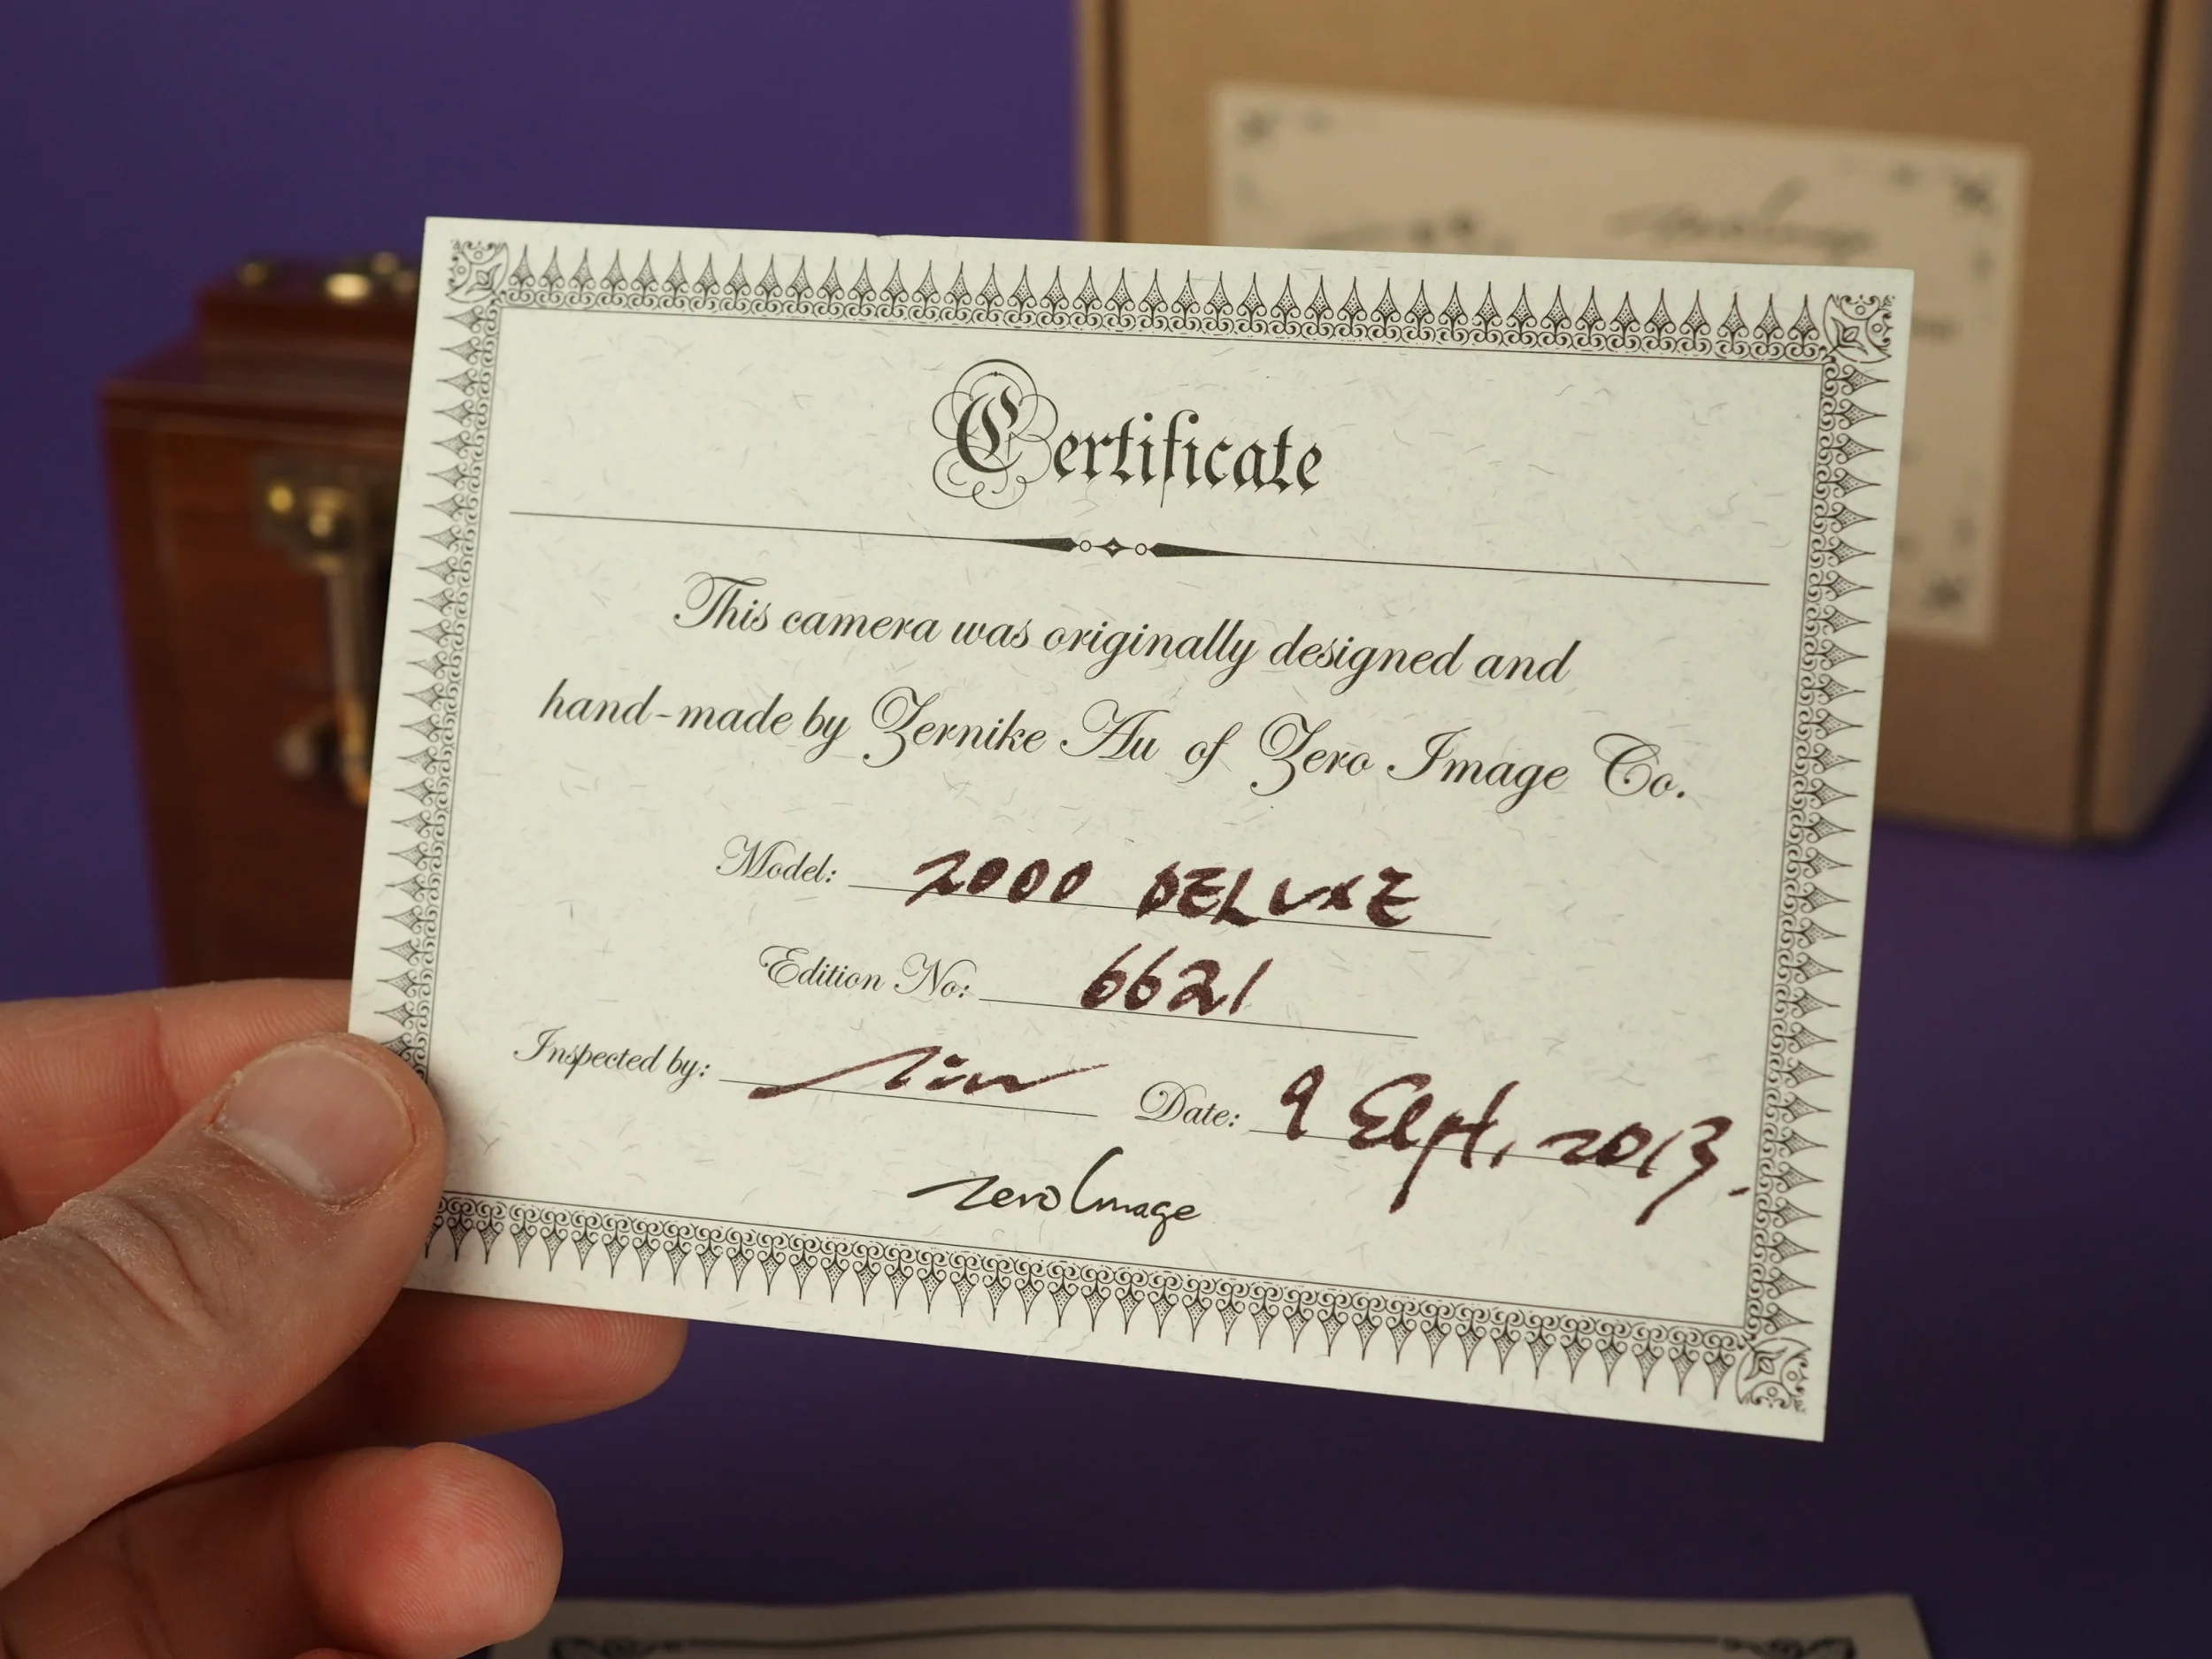 Certificate
This camera was originally designed and
hand-made by Zernike Au of Zero Image Co.
Model: 2000 DELUXE
Edition No: 6621
Inspected by:
Date: 9 Sept, 2013.
zero Image